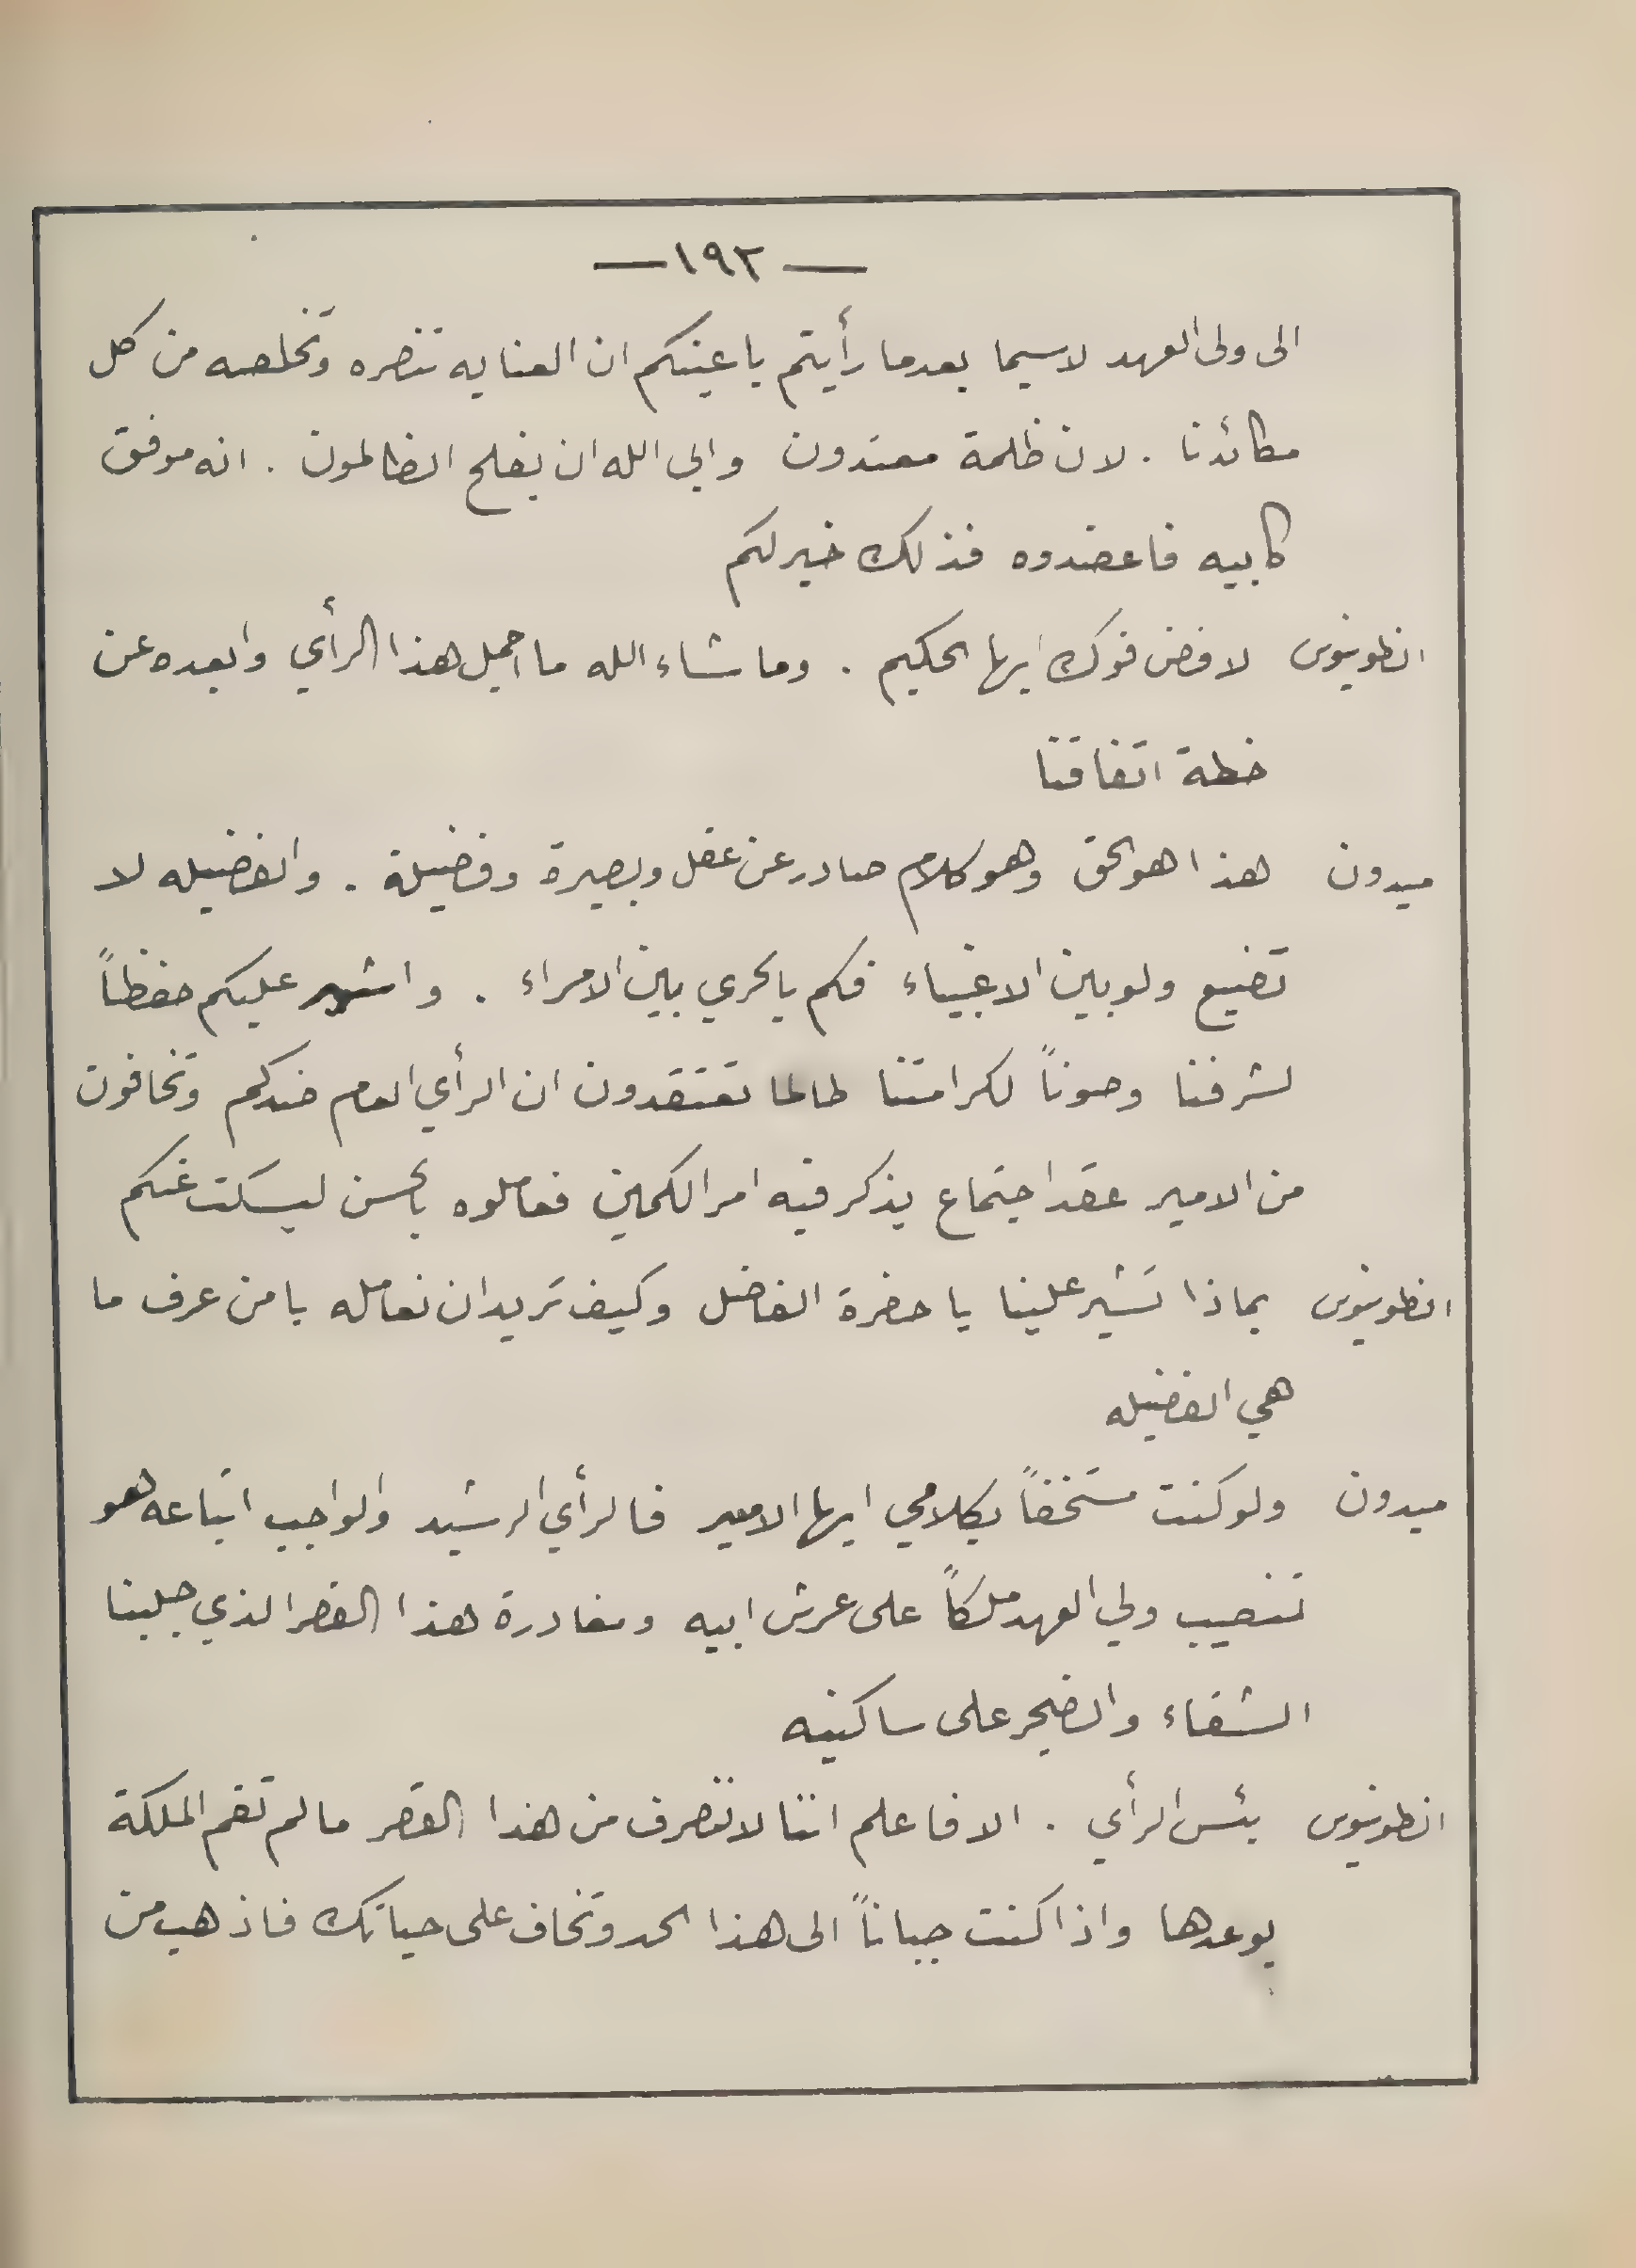 — ١٩٢ —
الى ولى العهد لاسيما بعدما رأيتم باعينكم ان العنايه تنصره وتخلصه من كل
مكائدنا . لان ظلمة معتدون وابى الله ان يفلح الظالمون . انه موفق
كابيه فاعضدوه فذلك خير لكم
انطونيوس لا فض فوك ايها الحكيم . وما شاء الله ما اجمل هذا الرأي وابعده عن
خطة اتفاقنا
ميدون هذا هو الحق وهو كلام صادر عن عقل وبصيرة وفضيلة . والفضيله لا
تضيع ولو بين الاغبياء فكم بالحري بين الامراء . واشير عليكم حفظاً
لشرفنا وصوناً لكرامتنا طالما تعتقدون ان الرأي العام ضدكم وتخافون
من الامير عقد اجتماع يذكر فيه امر الكمين فعاملوه بالحسن ليسكت عنكم
انطونيوس بماذا تشير علينا يا حضرة الفاضل وكيف تريد ان نعامله يا من عرف ما
هي الفضيله
ميدون ولو كنت مستخفاً بكلامي ايها الامير فالرأي الرشيد والواجب اتباعه هو
تنصيب ولي العهد ملكاً على عرش ابيه ومغادرة هذا القصر الذي جلبنا
الشقاء والضجر على ساكنيه
انطونيوس بئس الرأي . الا فاعلم اننا لا نتصرف من هذا القصر ما لم تقم الملكة
بوعدها واذا كنت جباناً الى هذا الحد وتخاف على حياتك فاذهب من